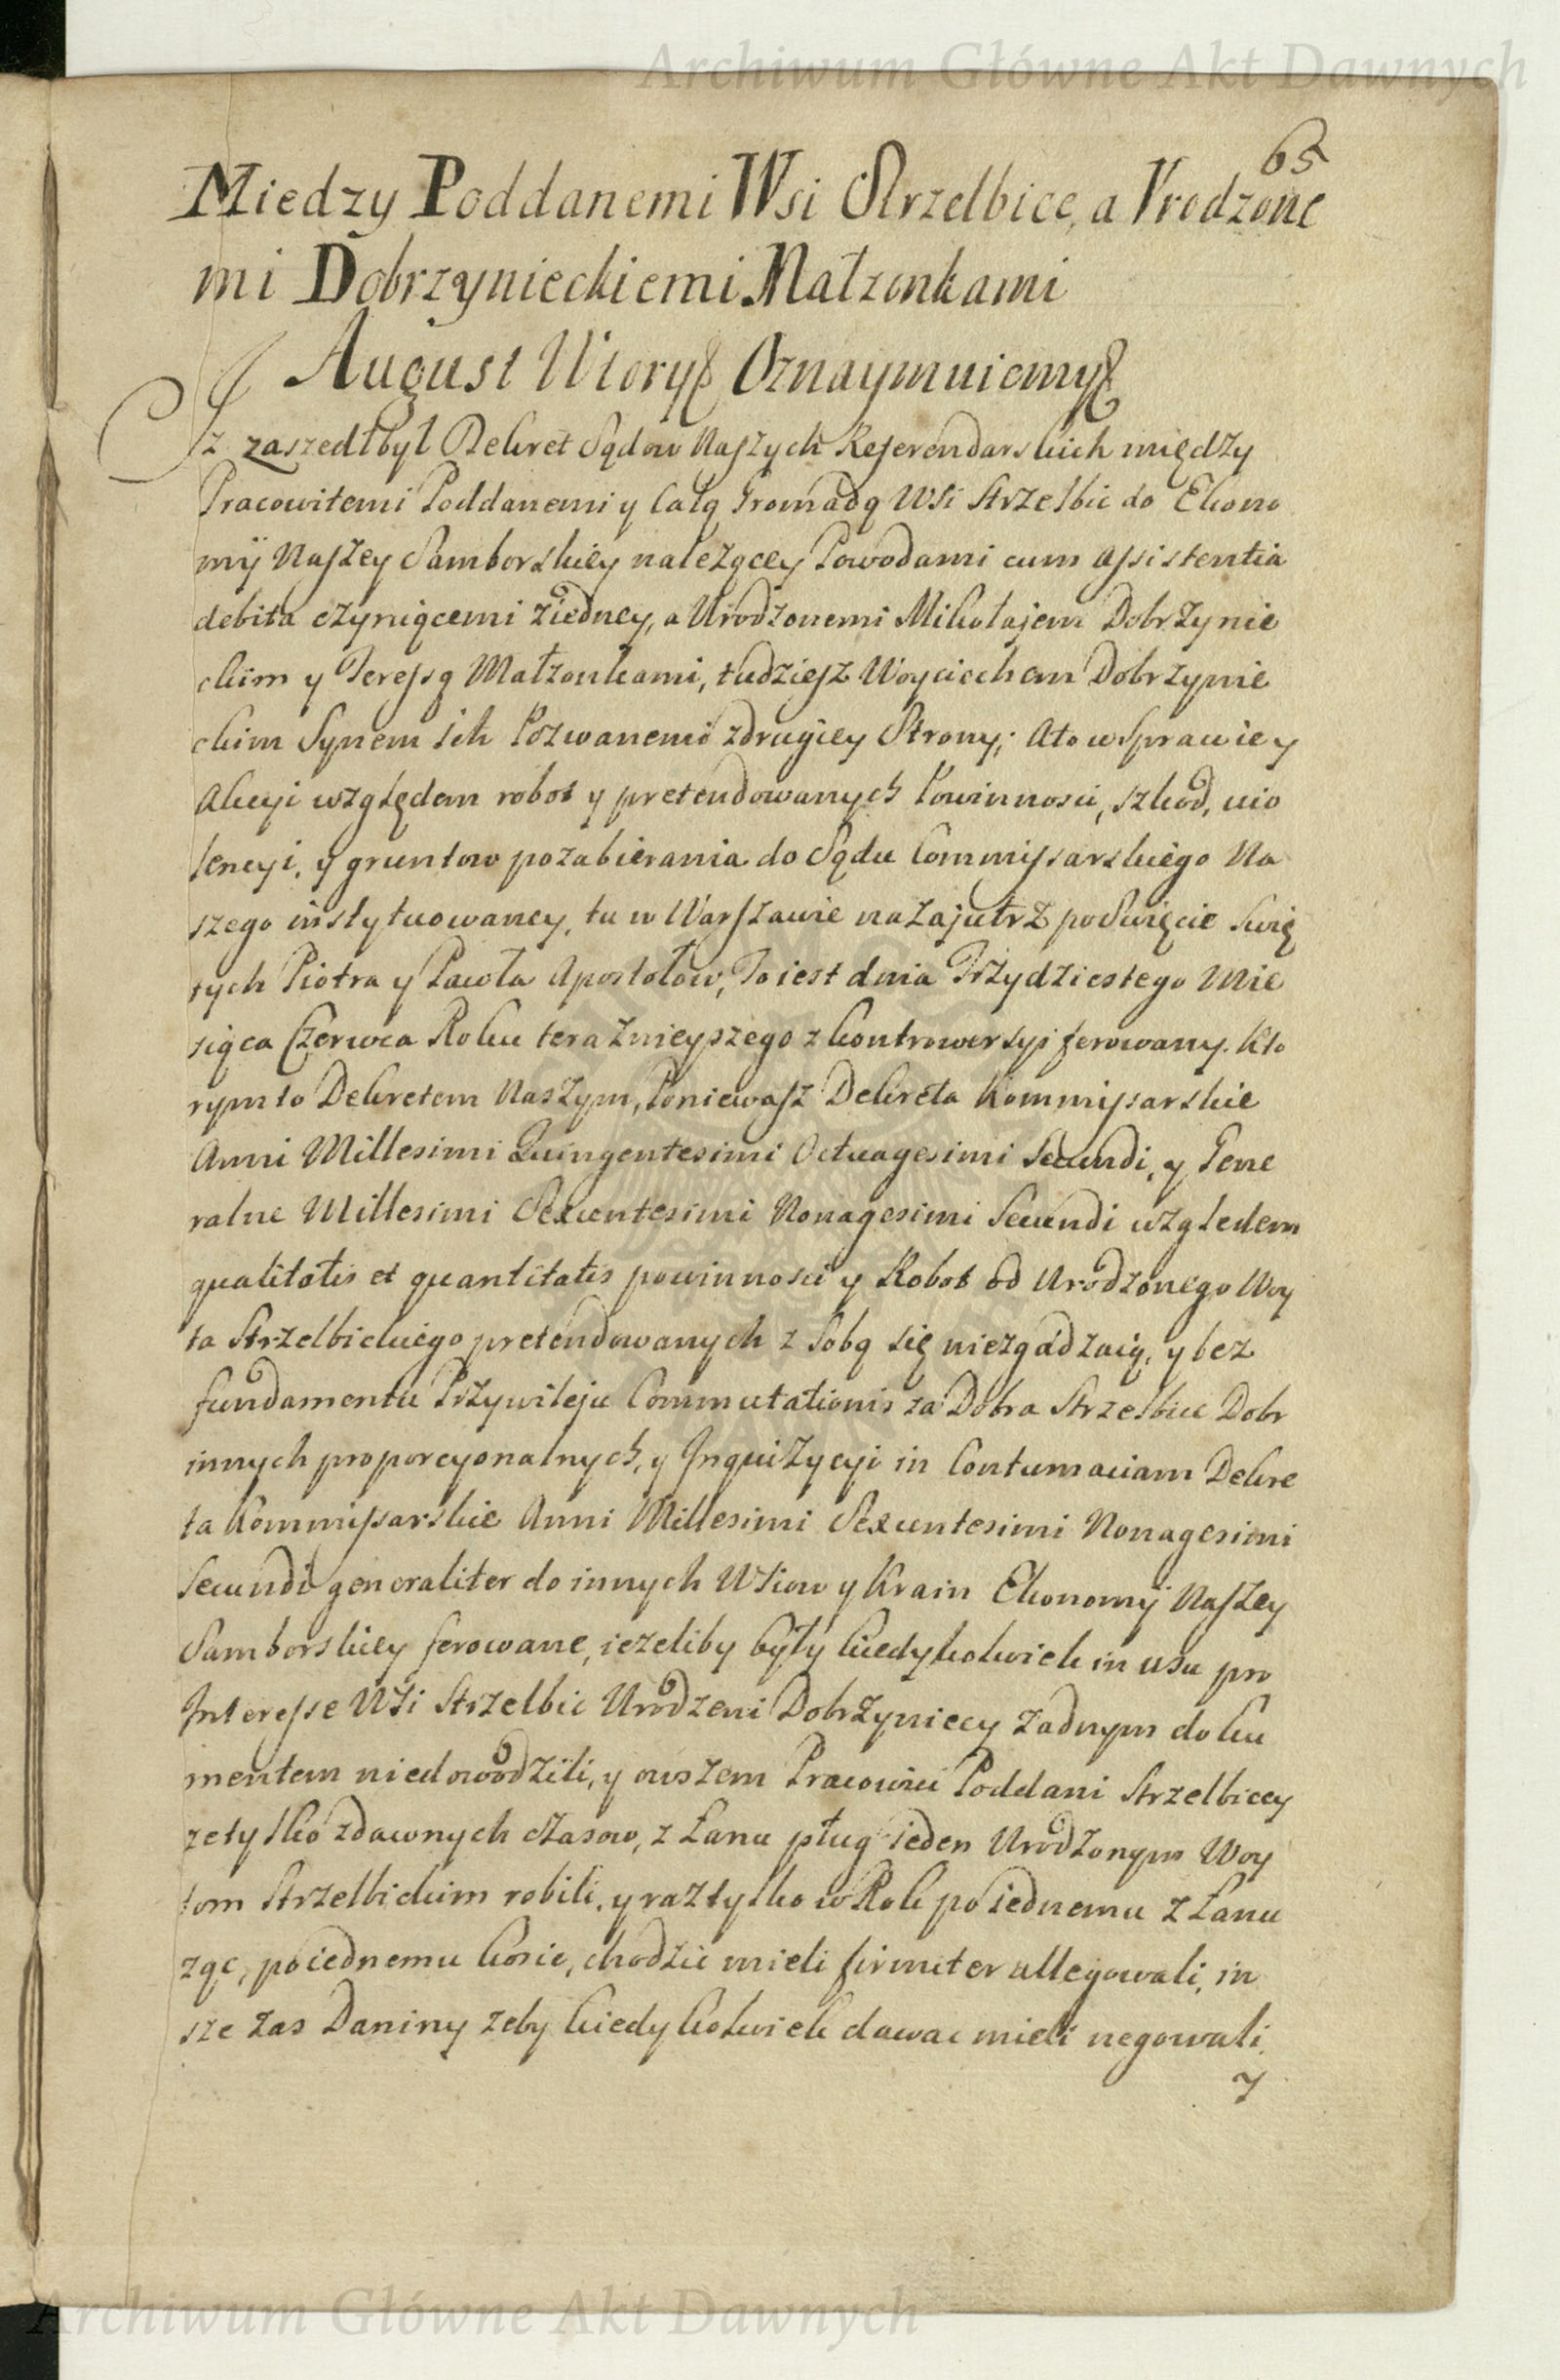 Archiwum Główne Akt Dawnych
65
Miedzy Poddanemi Wsi Strzelbice, a Vrodzone
mi Dobrzynieckiemi Małzonkami
August Wtory Oznaymuiemy
Jz zaszedł był Dekret Sądow Naszych Referendarskich między
Pracowitemi Poddanemi y Całą Gromadą WSi Strzelbic do Ekono
mÿ Naszey Samborskiey należącey Powodami cum assistentia
debita czyniącemi ziedney, a Urodzonemi Mikołajem Dobrzynie
ckim y Teressą Małzonkami, tudziesz Woyciechem Dobrzynie
ckim Synem ich Pozwanemi zdrugiey Strony; Ato w Sprawie y
Akcyi względem robot y pretendowanych Powinnosci, szkod, vio
lencyi, y gruntow pozabierania do Sądu Commissarskiego Na
szego instytuowaney, tu w Warszawie nazajutrz po Swięcie Swię
tych Piotra y Pawła Apostołow, To iest dnia Trzydziestego Mie
siąca Czerwca Roku teraznieyszego z kontrowersyi ferowany. Kto
rym to Dekretem Naszym, Poniewasz Dekreta Kommissarskie
Anni Millesimi Quingentesimi Octuagesimi Secundi, y Gene
ralne Millesimi Sexcentesimi Nonagesimi Secundi względem
qualitatis et quantitatis powinnosci y Robot od Urodzonego Woy
ta Strzelbickiego pretendowanych z Sobą się niezgadzaią, y bez
fundamentu Przywileju Commutationis za Dobra Strzelbice Dobr
innych proporcyonalnych, y Jnquizycyi in Contumaciam Dekre
ta Kommissarskie Anni Millesimi Sexcentesimi Nonagesimi
Secundi generaliter do innych WSiow y Krain Ekonomÿ Naszey
Samborskiey ferowane, iezeliby były kiedykolwiek in usu pro
Jnteresse WSi Strzelbic Urodzeni Dobrzynieccy Zadnym doku
mentem niedowodzili, y owszem Pracowici Poddani Strzelbiccy
ze tylko zdawnych czasow, z Łanu pług ieden Urodzonym Woy
tom Strzelbickim robili, y raz tylko w Rok po iednemu z Łanu
ząc, po iednemu kosic, chodzic mieli firmiter allegowali, in
sze zas Daniny zeby kiedykolwiek dawac mieli negowali,
y
Archiwum Główne Akt Dawnych